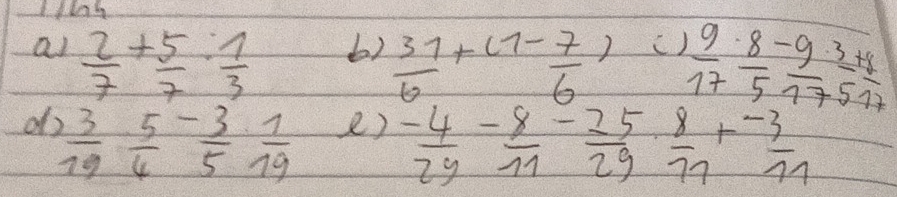 a) 2/7 + 5/7 · 1/3 b) 31/6 + (1 - 7/6) c) 9/17 · 8/5 - 9/17 · 3/5 + 8/17
d) 3/19 · 5/4 - 3/5 · 1/19 e) -4/29 - 8/11 - 25/29 · 8/11 + -3/11